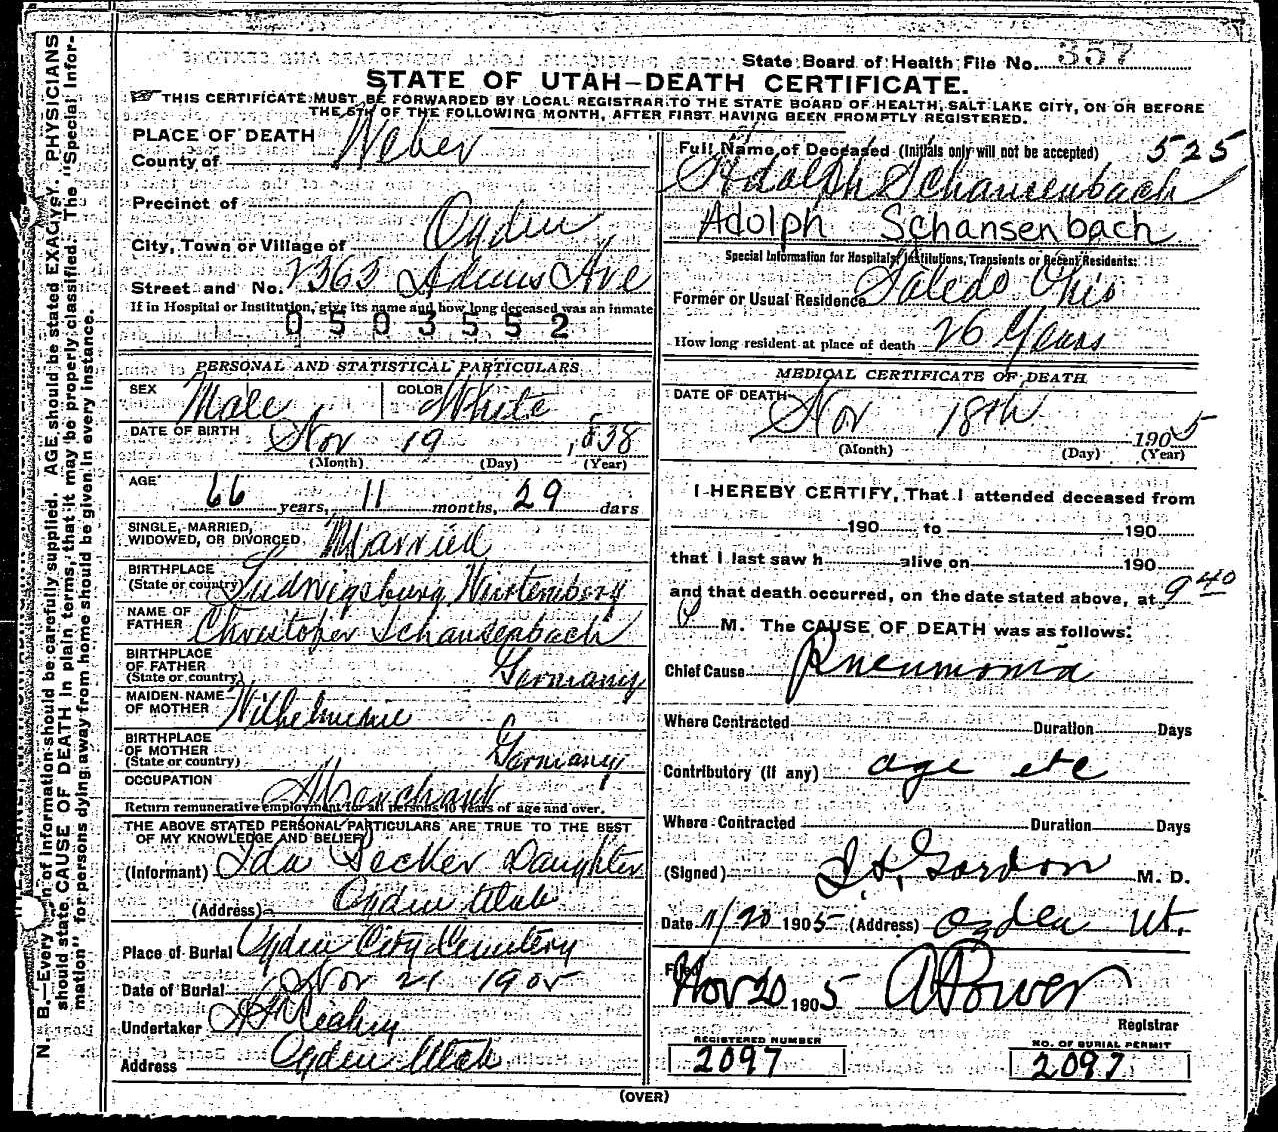 State Board of Health File No. 357
STATE OF UTAH—DEATH CERTIFICATE.
THIS CERTIFICATE MUST BE FORWARDED BY LOCAL REGISTRAR TO THE STATE BOARD OF HEALTH, SALT LAKE CITY, ON OR BEFORE
THE 5TH OF THE FOLLOWING MONTH, AFTER FIRST HAVING BEEN PROMPTLY REGISTERED.
N. B.—Every item of information should be carefully supplied. AGE should be stated EXACTLY. PHYSICIANS
should state CAUSE OF DEATH in plain terms, that it may be properly classified. The "Special Infor-
mation" for persons dying away from home should be given in every instance.
PLACE OF DEATH
County of Weber
Precinct of
City, Town or Village of Ogden
Street and No. 2363 Adams Ave
If in Hospital or Institution, give its name and how long deceased was an inmate
0503552
PERSONAL AND STATISTICAL PARTICULARS
SEX Male COLOR White
DATE OF BIRTH Nov 19, 1838
(Month) (Day) (Year)
AGE 66 years, 11 months, 29 days
SINGLE, MARRIED,
WIDOWED, OR DIVORCED Married
BIRTHPLACE
(State or country) Ludwigsburg Wurtemberg
NAME OF
FATHER Christopher Schansenbach
BIRTHPLACE
OF FATHER
(State or country) Germany
MAIDEN NAME
OF MOTHER Wilhelmine
BIRTHPLACE
OF MOTHER
(State or country) Germany
OCCUPATION Merchant
Return remunerative employment for all persons 10 years of age and over.
THE ABOVE STATED PERSONAL PARTICULARS ARE TRUE TO THE BEST
OF MY KNOWLEDGE AND BELIEF
(Informant) Ida Becker Daughter
(Address) Ogden Utah
Place of Burial Ogden City Cemetery
Date of Burial Nov 21 1905
Undertaker
Address Ogden Utah
Full Name of Deceased (Initials only will not be accepted) 525
Adolph Schansenbach
Adolph Schansenbach
Special Information for Hospitals, Institutions, Transients or Recent Residents:
Former or Usual Residence Toledo Ohio
How long resident at place of death 26 Years
MEDICAL CERTIFICATE OF DEATH
DATE OF DEATH Nov 18th 1905
(Month) (Day) (Year)
I HEREBY CERTIFY, That I attended deceased from
190 to 190
that I last saw h alive on 190
and that death occurred, on the date stated above, at 9 40
P M. The CAUSE OF DEATH was as follows:
Chief Cause Pneumonia
Where Contracted Duration Days
Contributory (if any) age etc
Where Contracted Duration Days
(Signed) Gordon M. D.
Date 11/20 1905 (Address) Ogden Ut.
Filed Nov 20 1905 A Power
Registrar
REGISTERED NUMBER
2097
NO. OF BURIAL PERMIT
2097
(OVER)